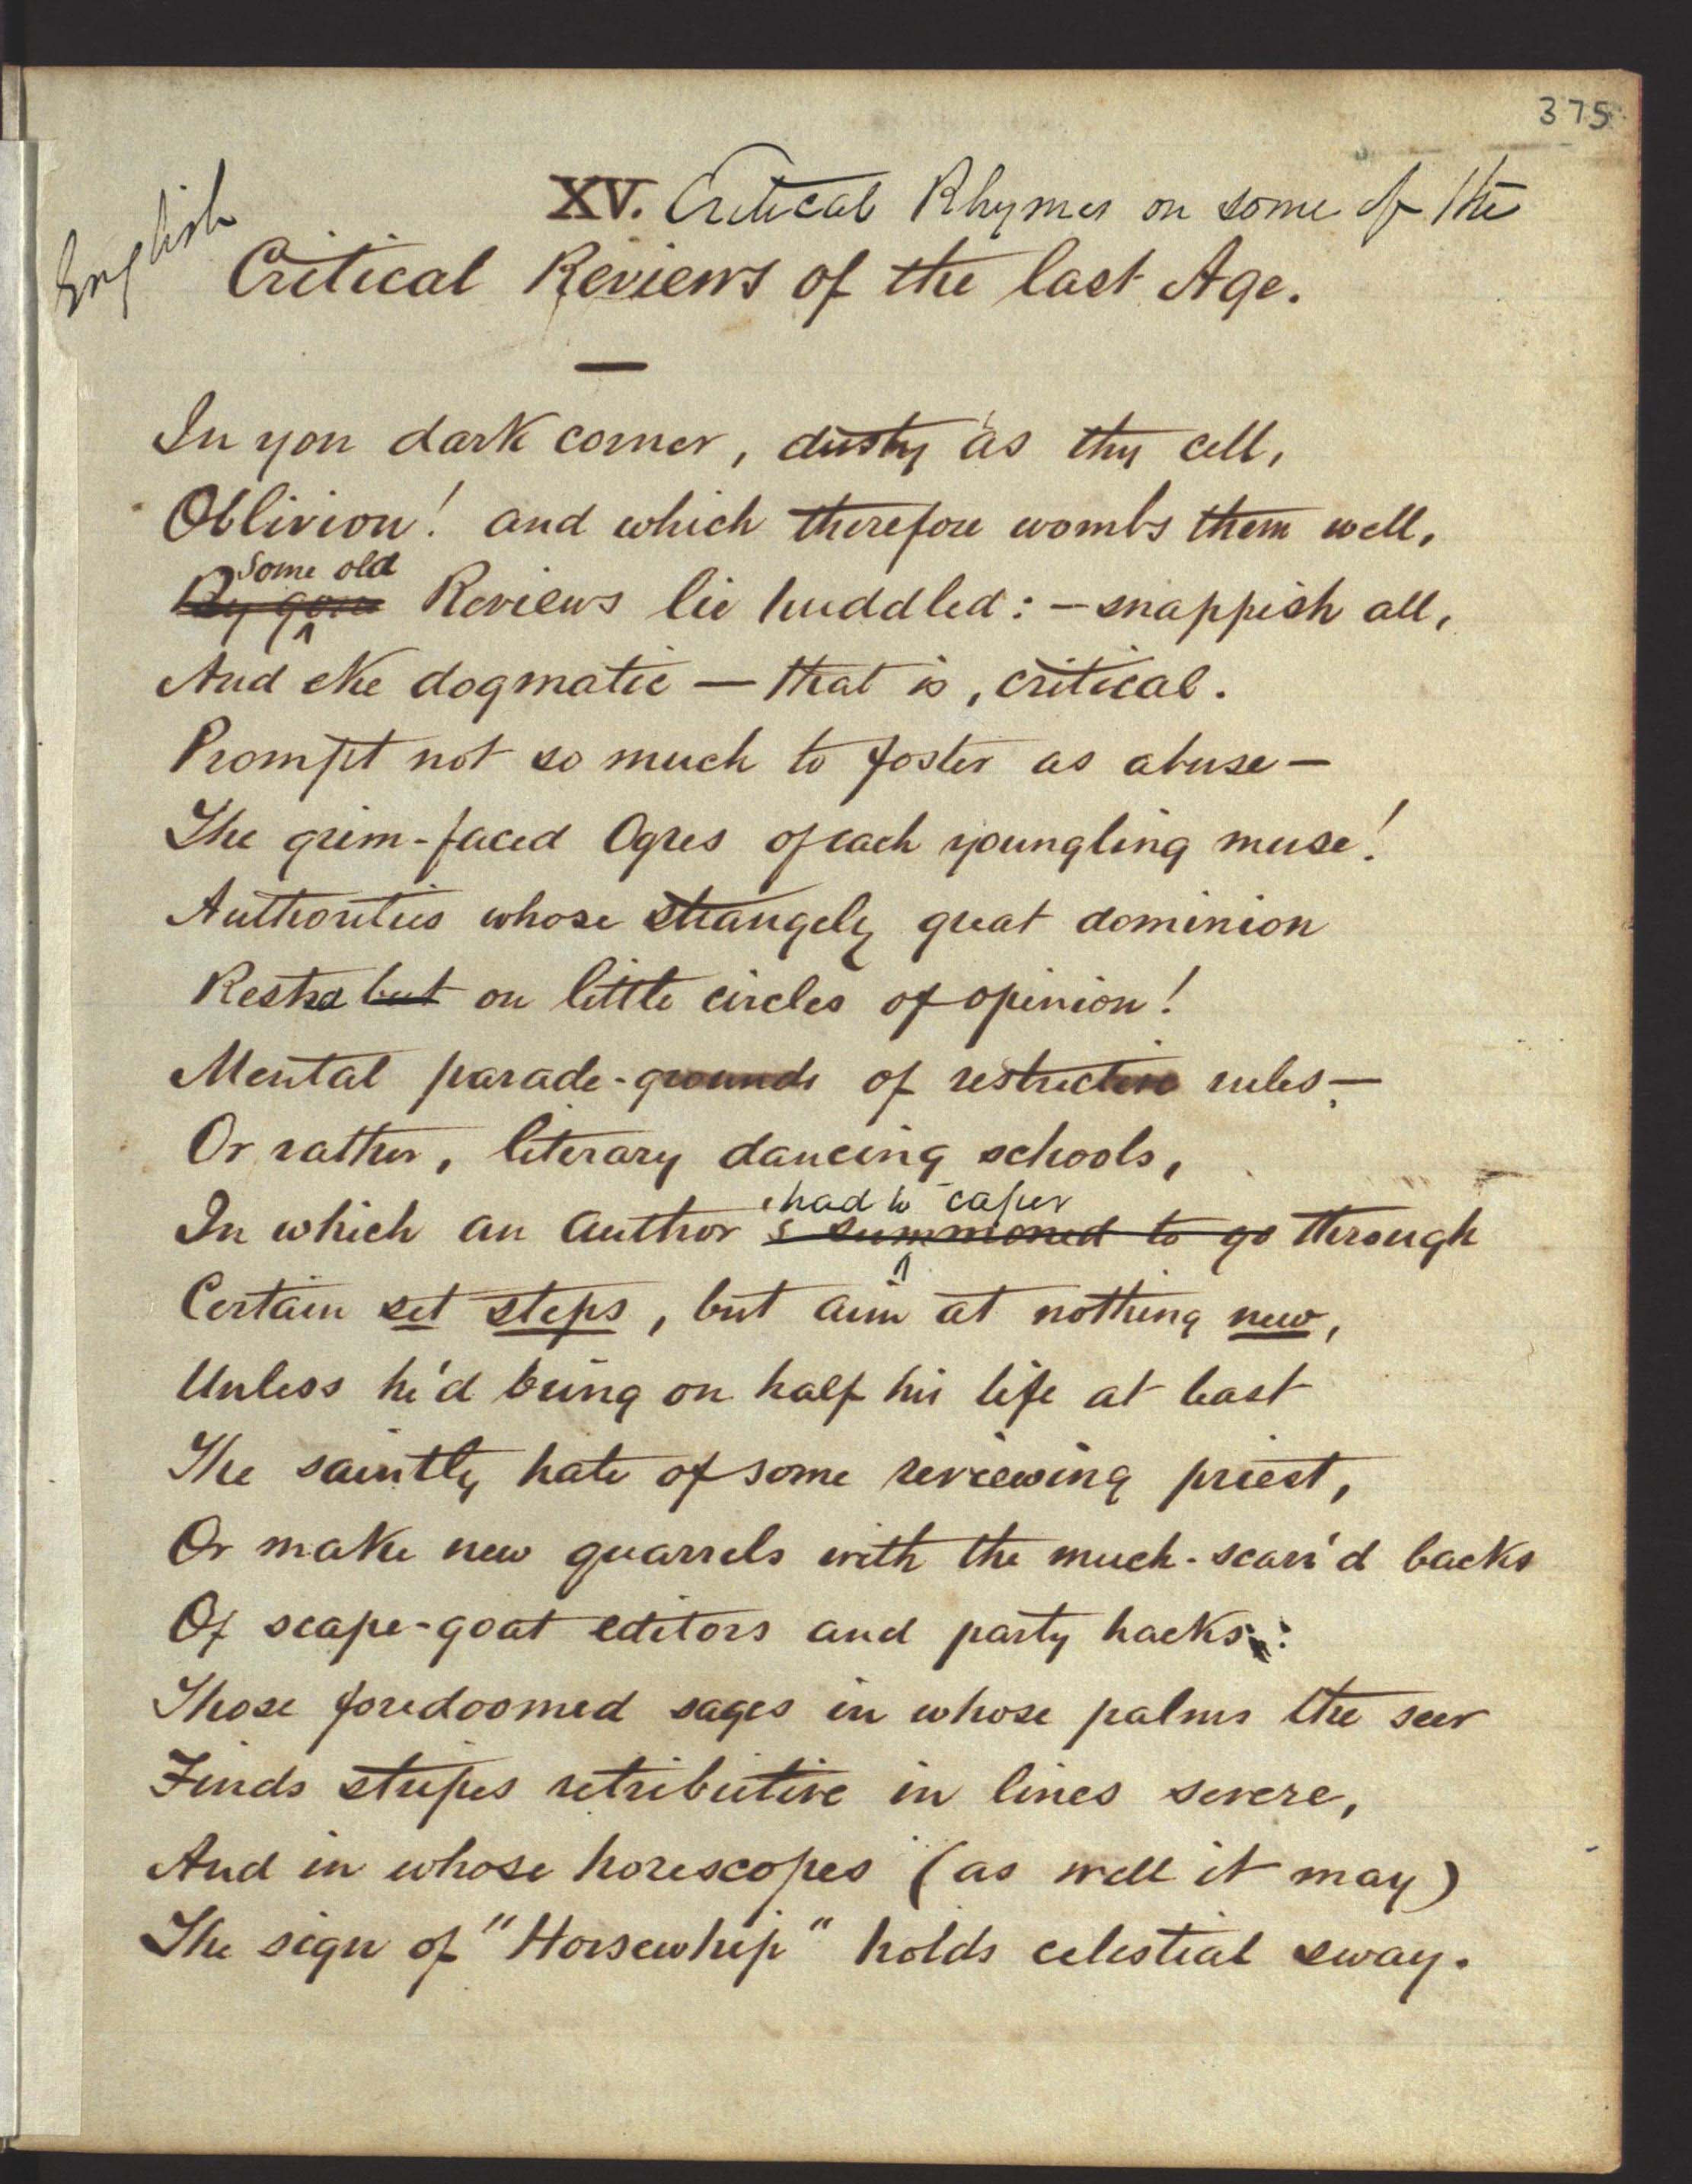 375
XV. Critical Rhymes on some of the
English
Critical Reviews of the last Age.
In yon dark corner, dusty as thy cell,
Oblivion! and which therefore wombs them well,
Some old
By gone Reviews lie huddled:—snappish all,
And eke dogmatic — that is, critical.
Prompt not so much to foster as abuse—
The grim-faced Ogres of each youngling muse!
Authorities whose strangely great dominion
Rested but on little circles of opinion!
Mental parade-grounds of restrictive rules—
Or rather, literary dancing schools,
had to caper
In which an author's summoned to go through
Certain set steps, but aim at nothing new,
Unless he'd bring on half his life at least
The saintly hate of some reviewing priest,
Or make new quarrels with the much-scarr'd backs
Of scape-goat editors and party hacks:
Those foredoomed sages in whose palms the seer
Finds stripes retributive in lines severe,
And in whose horescopes (as well it may)
The sign of "Horsewhip" holds celestial sway.